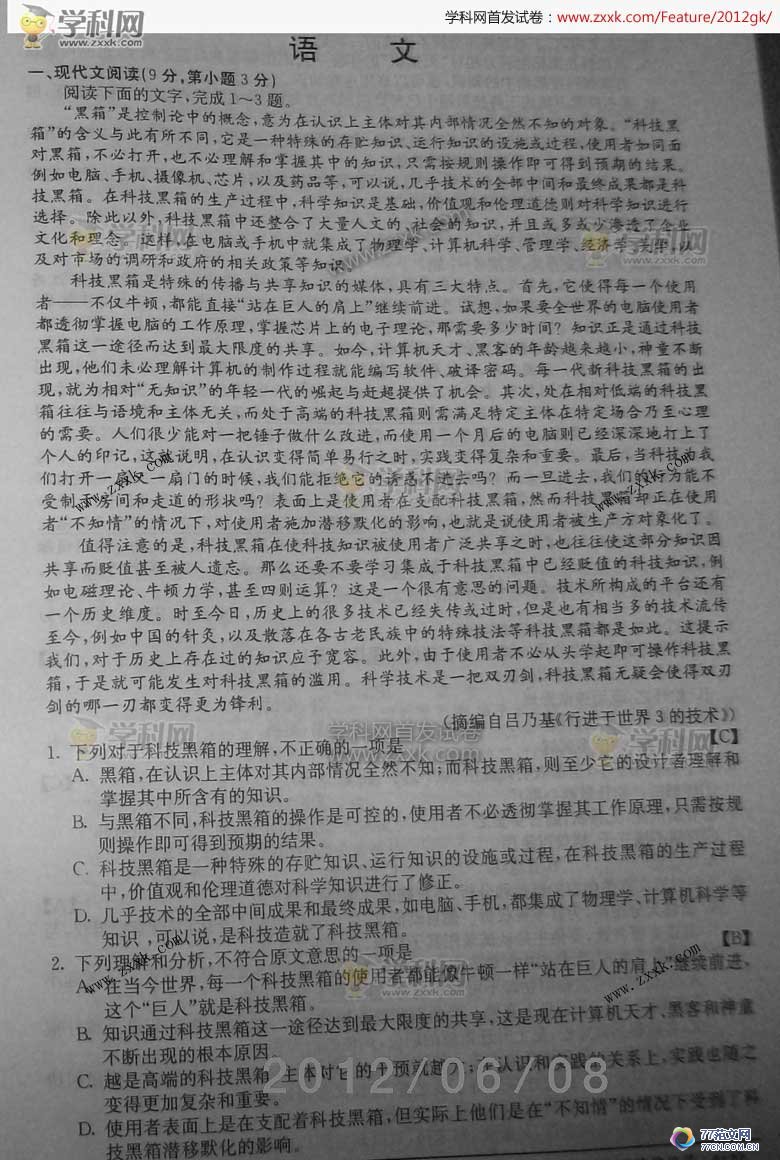 学科网
www.zxxk.com
学科网首发试卷：www.zxxk.com/Feature/2012gk/
语 文
一、现代文阅读(9分,第小题3分)
阅读下面的文字,完成1～3题。
“黑箱”是控制论中的概念,意为在认识上主体对其内部情况全然不知的对象。“科技黑
箱”的含义与此有所不同,它是一种特殊的存贮知识、运行知识的设施或过程,使用者如同面
对黑箱,不必打开,也不必理解和掌握其中的知识,只需按规则操作即可得到预期的结果。
例如电脑、手机、摄像机、芯片,以及药品等,可以说,几乎技术的全部中间和最终成果都是科
技黑箱。在科技黑箱的生产过程中,科学知识是基础,价值观和伦理道德则对科学知识进行
选择。除此以外,科技黑箱中还整合了大量人文的,社会的知识,并且或多或少渗透了企业
文化和理念。这样,在电脑或手机中就集成了物理学、计算机科学、管理学、经济学、美学,以
及对市场的调研和政府的相关政策等知识
科技黑箱是特殊的传播与共享知识的媒体,具有三大特点。首先,它使得每一个使用
者——不仅牛顿,都能直接“站在巨人的肩上”继续前进。试想,如果要全世界的电脑使用者
都透彻掌握电脑的工作原理,掌握芯片上的电子理论,那需要多少时间？知识正是通过科技
黑箱这一途径而达到最大限度的共享。如今,计算机天才、黑客的年龄越来越小,神童不断
出现,他们未必理解计算机的制作过程就能编写软件、破译密码。每一代新科技黑箱的出
现,就为相对“无知识”的年轻一代的崛起与赶超提供了机会。其次,处在相对低端的科技黑
箱往往与语境和主体无关,而处于高端的科技黑箱则需满足特定主体在特定场合乃至心理
的需要。人们很少能对一把锤子做什么改进,而使用一个月后的电脑则已经深深地打上了
个人的印记,这就说明,在认识变得简单易行之时,实践变得复杂和重要。最后,当科技为我
们打开一扇又一扇门的时候,我们能拒绝它的诱惑不进去吗？而一旦进去,我们的行为能不
受制于房间和走道的形状吗？表面上是使用者在支配科技黑箱,然而科技黑箱却正在使用
者“不知情”的情况下,对使用者施加潜移默化的影响,也就是说使用者被生产方对象化了。
值得注意的是,科技黑箱在使科技知识被使用者广泛共享之时,也往往使这部分知识因
共享而贬值甚至被人遗忘。那么还要不要学习集成于科技黑箱中已经贬值的科技知识,例
如电磁理论、牛顿力学,甚至四则运算？这是一个很有意思的问题。技术所构成的平台还有
一个历史维度。时至今日,历史上的很多技术已经失传或过时,但是也有相当多的技术流传
至今,例如中国的针灸,以及散落在各古老民族中的特殊技法等科技黑箱都是如此。这提示
我们,对于历史上存在过的知识应予宽容。此外,由于使用者不必从头学起即可操作科技黑
箱,于是就可能发生对科技黑箱的滥用。科学技术是一把双刃剑,科技黑箱无疑会使得双刃
剑的哪一刃都变得更为锋利。
(摘编自吕乃基《行进于世界3的技术》)
1. 下列对于科技黑箱的理解,不正确的一项是 【C】
A. 黑箱,在认识上主体对其内部情况全然不知;而科技黑箱,则至少它的设计者理解和
掌握其中所含有的知识。
B. 与黑箱不同,科技黑箱的操作是可控的,使用者不必透彻掌握其工作原理,只需按规
则操作即可得到预期的结果。
C. 科技黑箱是一种特殊的存贮知识、运行知识的设施或过程,在科技黑箱的生产过程
中,价值观和伦理道德对科学知识进行了修正。
D. 几乎技术的全部中间成果和最终成果,如电脑、手机,都集成了物理学、计算机科学等
知识,可以说,是科技造就了科技黑箱。
2. 下列理解和分析,不符合原文意思的一项是 【B】
A. 在当今世界,每一个科技黑箱的使用者都能像牛顿一样“站在巨人的肩上”继续前进,
这个“巨人”就是科技黑箱。
B. 知识通过科技黑箱这一途径达到最大限度的共享,这是现在计算机天才、黑客和神童
不断出现的根本原因
C. 越是高端的科技黑箱,主体对它的干预就越大;在认识和实践的关系上,实践也随之
变得更加复杂和重要。
D. 使用者表面上是在支配着科技黑箱,但实际上他们是在“不知情”的情况下受到了科
技黑箱潜移默化的影响。
2012/06/08
77范文网
77CN.COM.CN